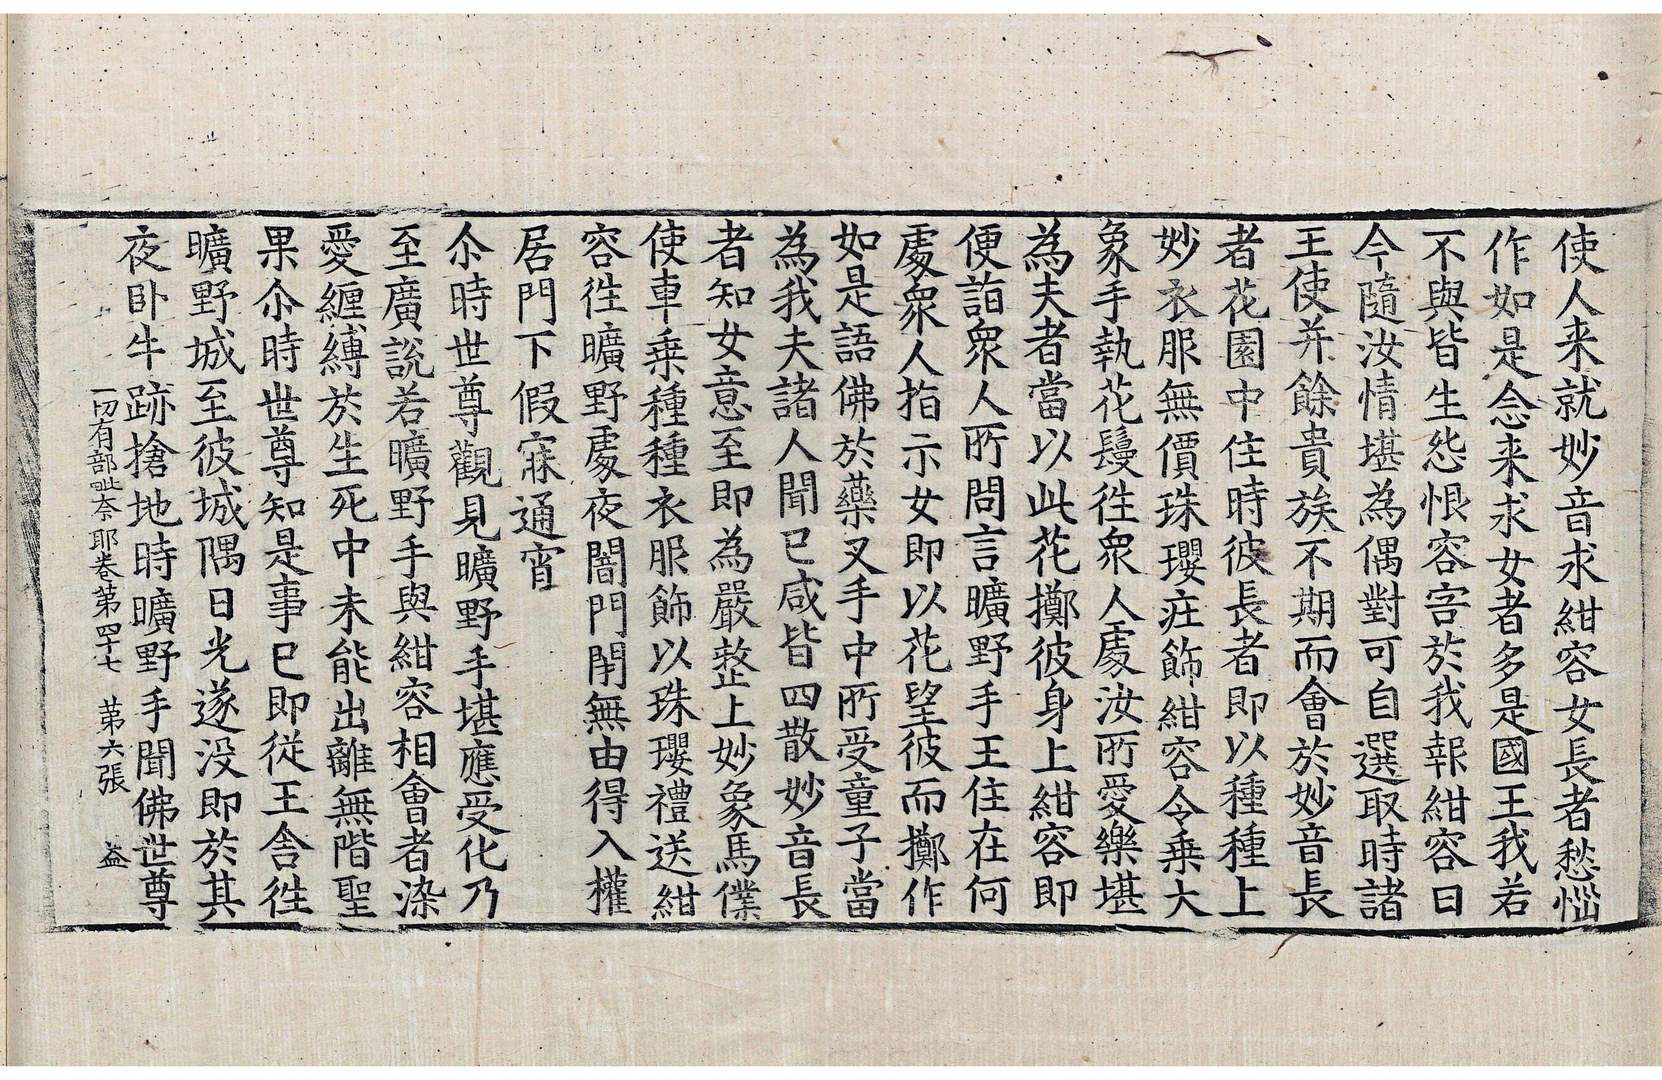 使人来就妙音求紺容女長者愁惱
作如是念来求女者多是國王我若
不與皆生怨恨容害於我報紺容曰
今隨汝情堪為偶對可自選取時諸
王使并餘貴族不期而會於妙音長
者花園中住時彼長者即以種種上
妙衣服無價珠瓔庄飾紺容令乗大
象手執花鬘徃衆人處汝所愛樂堪
為夫者當以此花擲彼身上紺容即
便詣衆人所問言曠野手王住在何
處衆人指示女即以花望彼而擲作
如是語佛於藥叉手中所受童子當
為我夫諸人聞已咸皆四散妙音長
者知女意至即為嚴整上妙象馬僕
使車乗種種衣服飾以珠瓔禮送紺
容徃曠野處夜闇門閇無由得入權
居門下假寐通宵
尒時世尊觀見曠野手堪應受化乃
至廣說若曠野手與紺容相會者染
愛纏縛於生死中未能出離無階聖
果尒時世尊知是事已即從王舎徃
曠野城至彼城隅日光遂没即於其
夜卧牛跡搶地時曠野手聞佛世尊
一切有部毗奈耶卷第四十七 第六張 益